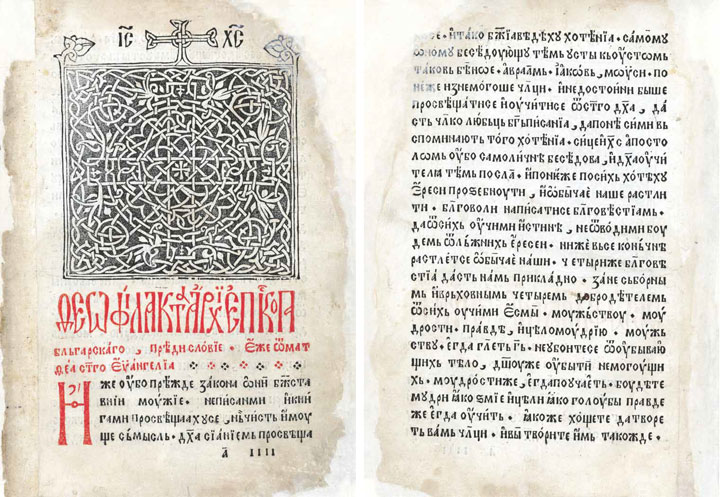 ІС ХС
ѲЕѠФИЛАКТА АРХІЕПІСКОПА
бльгарскаго, прѣдисловїе · еже ѿмат
ѳеа ст҃го еѵангелїа
Иже оубо прѣжде закона ѡни бж҃ств
внїи моужїе · неписанми икни
гами просвѣщаахусе, нь чисть имоу
ще съмысль · дх҃а сїанїемь просвѣща
а ІІІІ
се · итако бж҃їа вѣдѣху хотѣнїа · самому
ѡному бесѣдоующу тѣмь усты къоустомь
таковь бѣ ное · авраамь · іаковь, моѵси · по
неже изнемогоше чл҃ци · инедостоини быше
просвѣщатисе иоучитисе ѿст҃го дх҃а, да
сть чл҃колюбьць бг҃ь писанїа, дапонѣ сими вь
споминають того хотѣнїа · сице іх҃с апосто
ломь оубо самоличнѣ бесѣдова, идх҃а оучи
телꙗ тѣмь посла · ипонѥже посихь хотѣху
ереси прозебноути, иобычае наше растли
ти · благоволи написатисе бл҃говѣстїамь ·
да ѿсихь оучими истинѣ, не ѿводими боу
демь ѿльжнихь ересеи · ниже вьсе коньчнѣ
растлетсе обычае наши · четырѥже бл҃говѣ
стїа дасть намь прикладно · зане сьборны
мь иврьховнымь четыремь добродѣтелемь
ѿсихь оучими есмы · моужьствоу · моу
дрости · правдѣ, ицѣломоудрїю · моужь
ству · егда гл҃еть гь҃ · неубоитесе ѿубиваю
щихь тѣло, дш҃оуже оубыти немогоущ
ихь · моудростиже, егда поучаеть · боудѣте
мудри ꙗко змїе ицѣли ꙗко голоубы правде
же егда оучить · ꙗкоже хощете да творе
ть вамь чл҃ци · ивы творите имь такожде ·